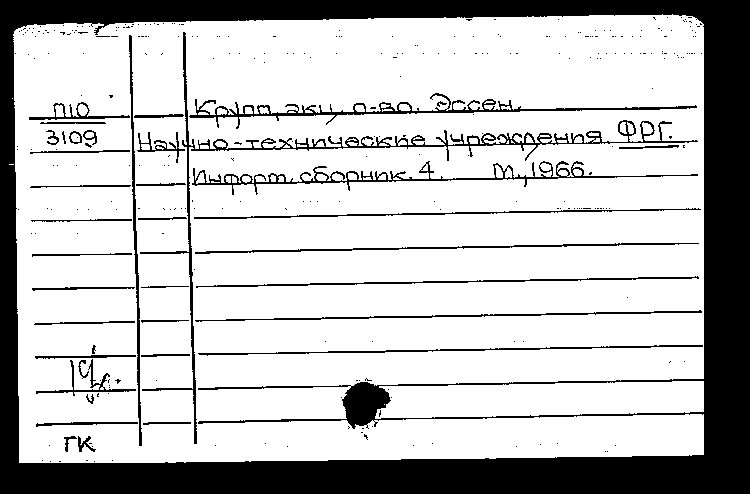 П10 Крупп, акц. о-во. Эссен.
3109 Научно-технические учреждения ФРГ.
Информ. сборник. 4. М., 1966.
ГК